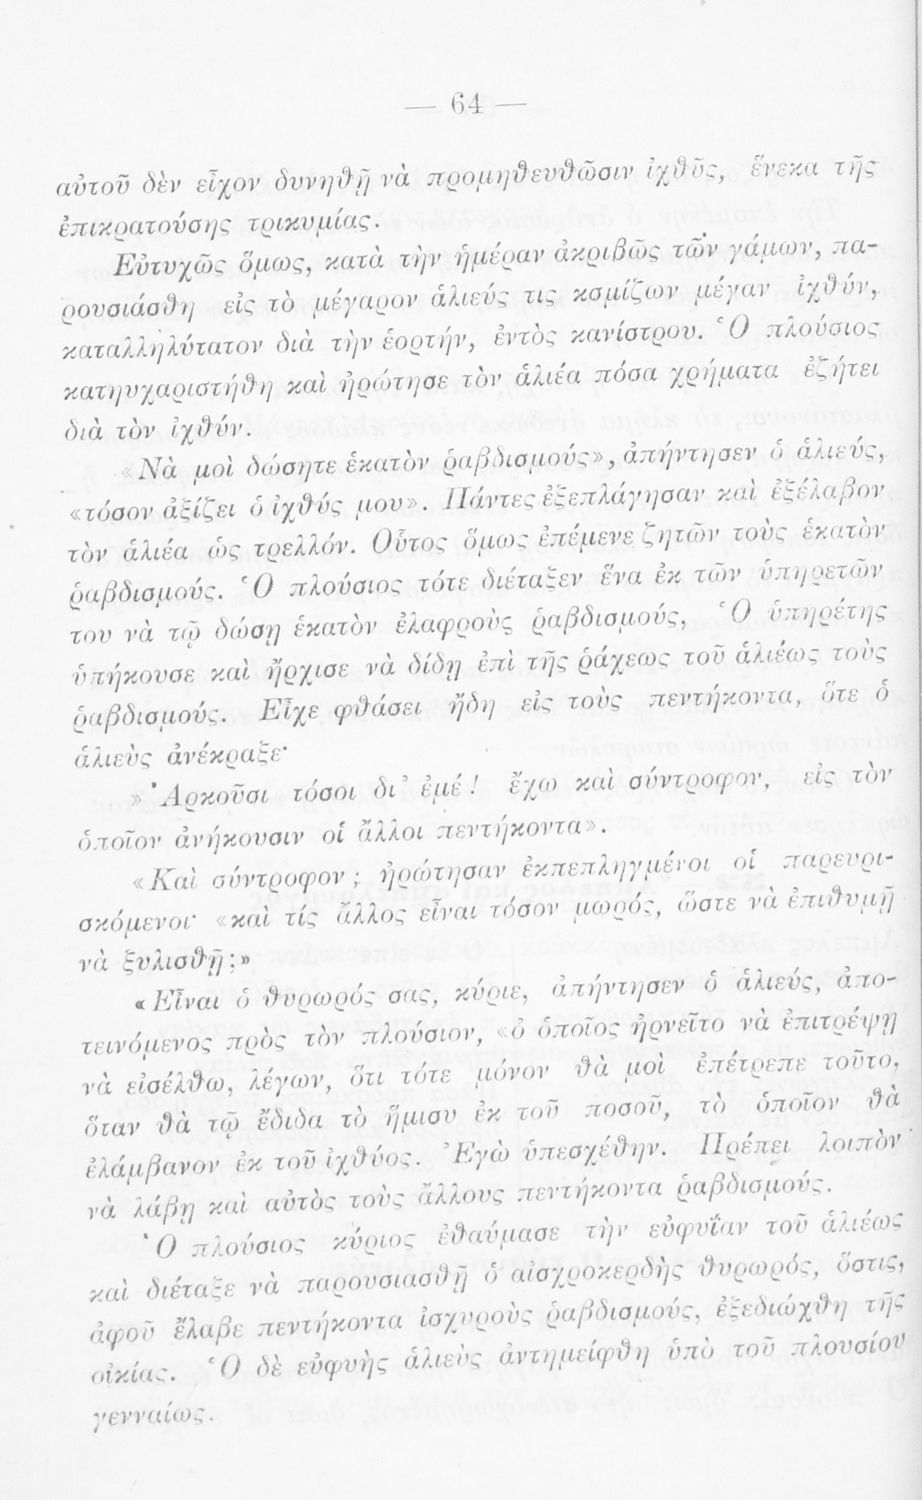 — 64 —
αὐτοῦ δὲν εἶχον δυνηθῇ νὰ προμηθευθῶσιν ἰχθῦς, ἕνεκα τῆς
ἐπικρατούσης τρικυμίας.
Εὐτυχῶς ὅμως, κατὰ τὴν ἡμέραν ἀκριβῶς τῶν γάμων, πα-
ρουσιάσθη εἰς τὸ μέγαρον ἁλιεύς τις κομίζων μέγαν ἰχθύν,
καταλληλότατον διὰ τὴν ἑορτήν, ἐντὸς κανίστρου. Ὁ πλούσιος
κατηυχαριστήθη καὶ ἠρώτησε τὸν ἁλιέα πόσα χρήματα ἐζήτει
διὰ τὸν ἰχθύν.
«Νὰ μοὶ δώσητε ἑκατὸν ῥαβδισμούς», ἀπήντησεν ὁ ἁλιεύς,
«τόσον ἀξίζει ὁ ἰχθύς μου». Πάντες ἐξεπλάγησαν καὶ ἐξέλαβον
τὸν ἁλιέα ὡς τρελλόν. Οὗτος ὅμως ἐπέμενε ζητῶν τοὺς ἑκατὸν
ῥαβδισμούς. Ὁ πλούσιος τότε διέταξεν ἕνα ἐκ τῶν ὑπηρετῶν
του νὰ τῷ δώσῃ ἑκατὸν ἐλαφροὺς ῥαβδισμούς, Ὁ ὑπηρέτης
ὑπήκουσε καὶ ἤρχισε νὰ δίδῃ ἐπὶ τῆς ῥάχεως τοῦ ἁλιέως τοὺς
ῥαβδισμούς. Εἶχε φθάσει ἤδη εἰς τοὺς πεντήκοντα, ὅτε ὁ
ἁλιεὺς ἀνέκραξε·
»Ἀρκοῦσι τόσοι δι' ἐμέ! ἔχω καὶ σύντροφον, εἰς τὸν
ὁποῖον ἀνήκουσιν οἱ ἄλλοι πεντήκοντα».
«Καὶ σύντροφον; ἠρώτησαν ἐκπεπληγμένοι οἱ παρευρι-
σκόμενοι· «καὶ τίς ἄλλος εἶναι τόσον μωρός, ὥστε νὰ ἐπιθυμῇ
νὰ ξυλισθῇ;»
«Εἶναι ὁ θυρωρός σας, κύριε, ἀπήντησεν ὁ ἁλιεύς, ἀπο-
τεινόμενος πρὸς τὸν πλούσιον, «ὁ ὁποῖος ἠρνεῖτο νὰ ἐπιτρέψῃ
νὰ εἰσέλθω, λέγων, ὅτι τότε μόνον θὰ μοὶ ἐπέτρεπε τοῦτο,
ὅταν θὰ τῷ ἔδιδα τὸ ἥμισυ ἐκ τοῦ ποσοῦ, τὸ ὁποῖον θὰ
ἐλάμβανον ἐκ τοῦ ἰχθύος. Ἐγὼ ὑπεσχέθην. Πρέπει λοιπὸν
νὰ λάβῃ καὶ αὐτὸς τοὺς ἄλλους πεντήκοντα ῥαβδισμούς.
Ὁ πλούσιος κύριος ἐθαύμασε τὴν εὐφυΐαν τοῦ ἁλιέως
καὶ διέταξε νὰ παρουσιασθῇ ὁ αἰσχροκερδὴς θυρωρός, ὅστις,
ἀφοῦ ἔλαβε πεντήκοντα ἰσχυροὺς ῥαβδισμούς, ἐξεδιώχθη τῆς
οἰκίας. Ὁ δὲ εὐφυὴς ἁλιεὺς ἀντημείφθη ὑπὸ τοῦ πλουσίου
γενναίως.